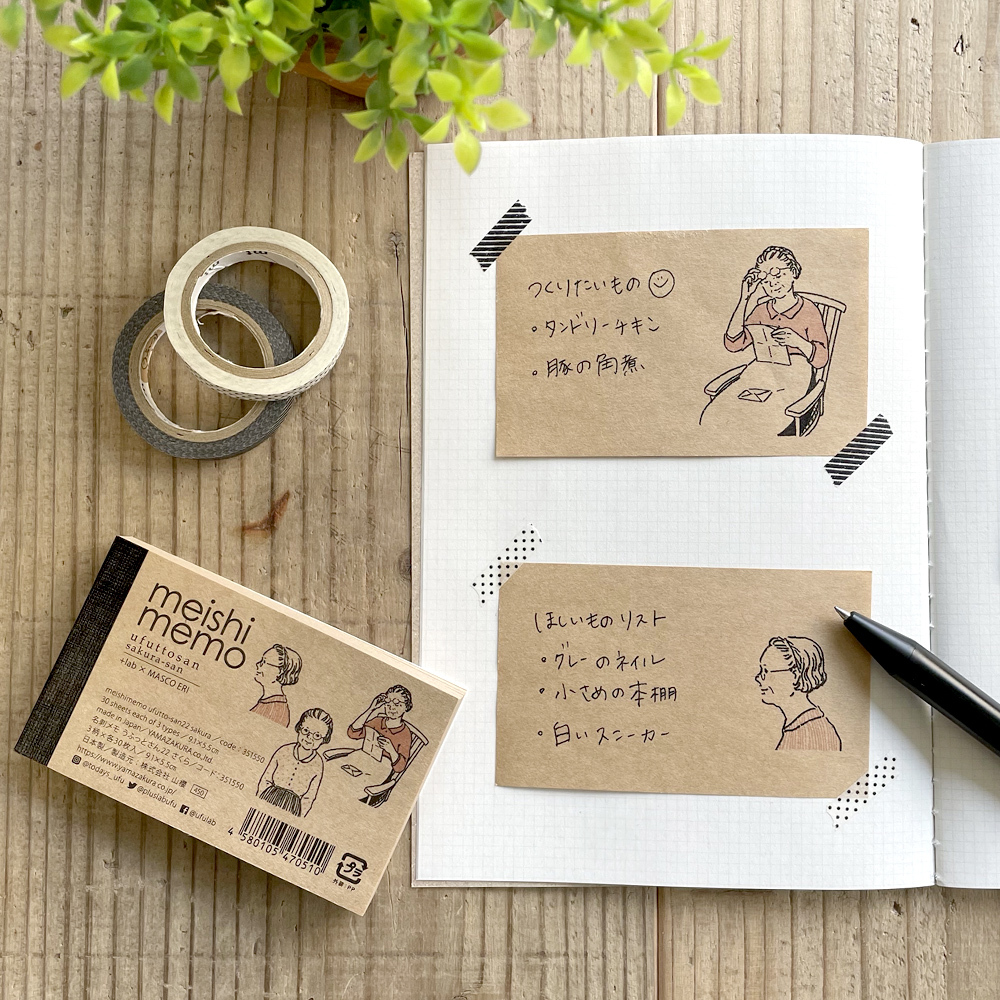 つくりたいもの
・タンドリーチキン
・豚の角煮
ほしいものリスト
・グレーのネイル
・小さめの本棚
・白いスニーカー
meishi
memo
ufuttosan
sakura-san
+lab × MASCO ERI
meishimemo ufutto-san22 sakura / code : 351550
30 sheets each of 3 types / 91×55㎜
made in Japan / YAMAZAKURA co.,ltd.
名刺メモ うふっとさん22 さくら / コード : 351550
3柄×各30枚入 / 91×55㎜
日本製 / 製造元 : 株式会社 山櫻
https://www.yamazakura.co.jp/ 450
@todays_ufu @pluslabufu @ufulab
4 580105 470510
プラ
外装:PP
mt